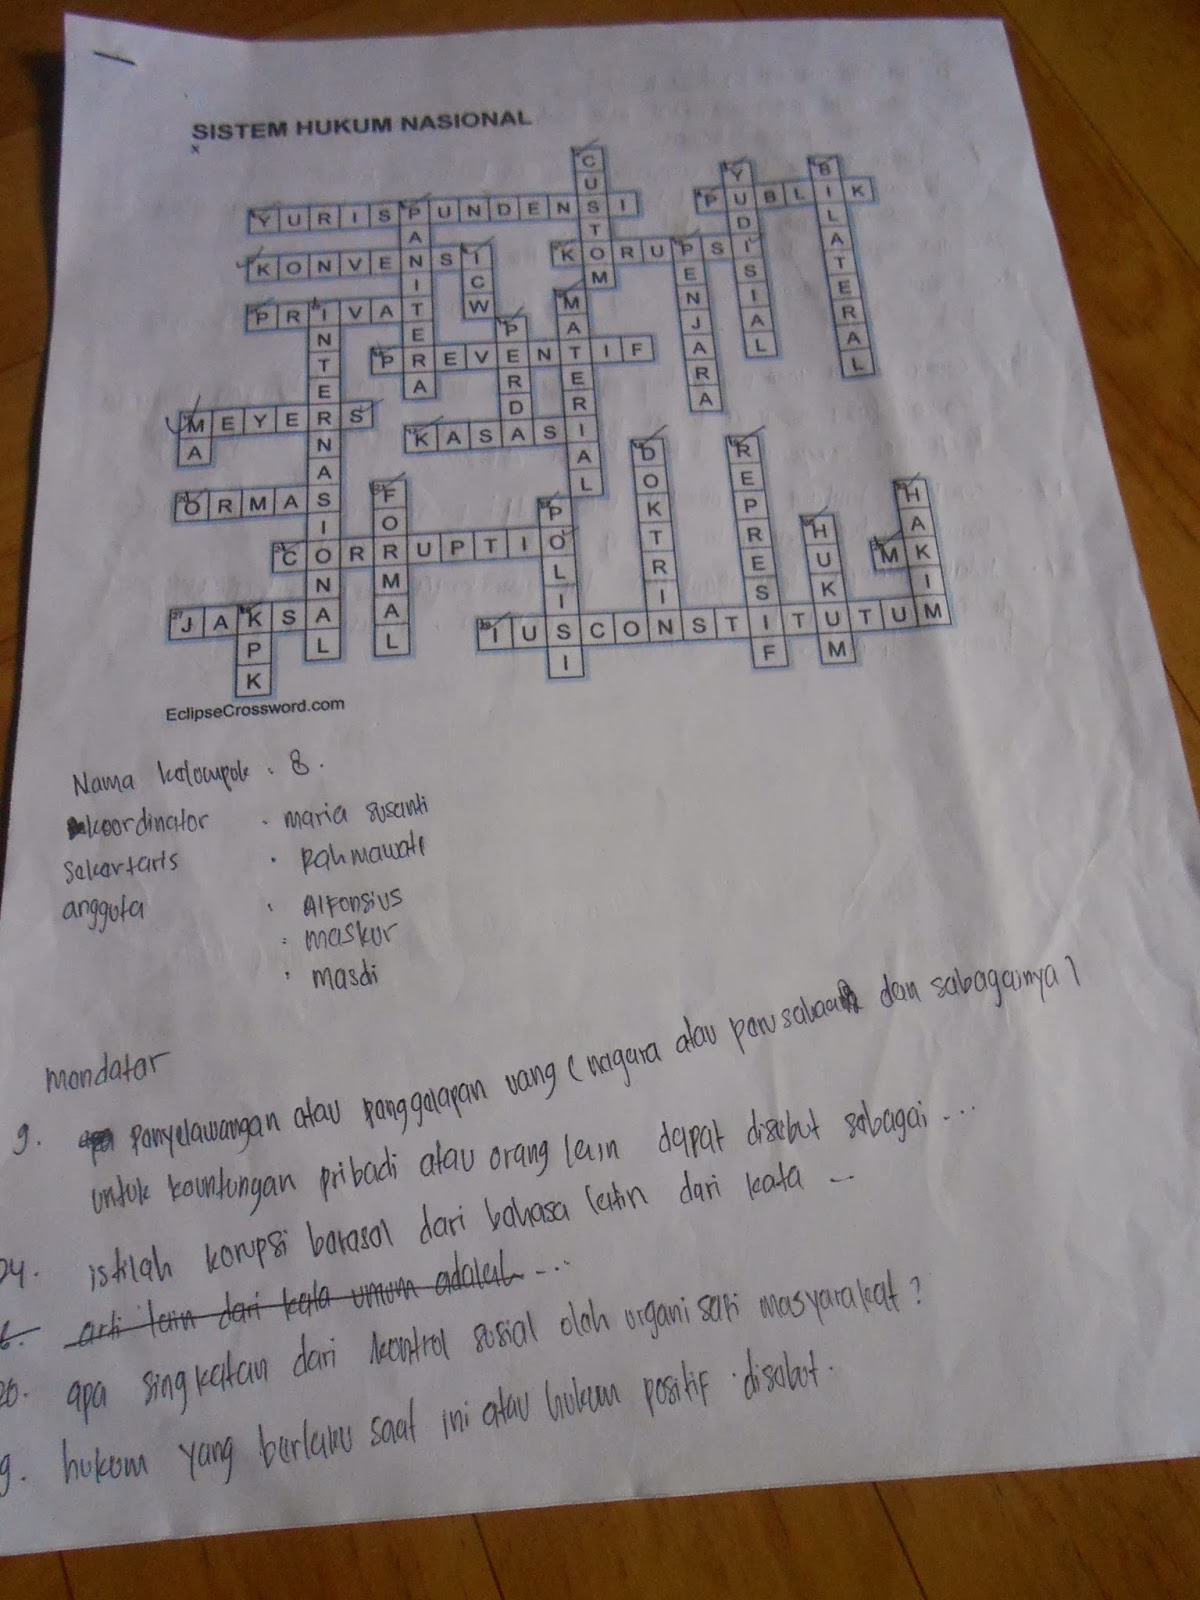 SISTEM HUKUM NASIONAL
x
CUSTOM
YUDISIAL
BILATERAL
PUBLIK
YURISPUNDENSI
PANITERA
KONVENSI
ICW
KORUPSI
PENJARA
PRIVAT
INTERNASIONAL
MATERIAL
PERDA
PREVENTIF
MEYERS
MA
KASASI
DOKTRIN
REPRESIF
ORMAS
FORMAL
POLISI
HAKIM
HUKUM
CORRUPTIO
MK
JAKSA
KPK
IUSCONSTITUTUM
EclipseCrossword.com
Nama kelompok : 8.
koordinator : maria susanti
Sekertaris : Rahmawati
anggota : Alfonsius
: maskur
: masdi
mendatar
9. penyelewangan atau penggelapan uang (negara atau perusahaan dan sebagainya)
untuk keuntungan pribadi atau orang lain dapat disebut sebagai ...
24. istilah korupsi berasal dari bahasa latin dari kata ...
arti lain dari kata umum adalah ...
20. apa singkatan dari kontrol sosial oleh organisasi masyarakat?
9. hukum yang berlaku saat ini atau hukum positif disebut.